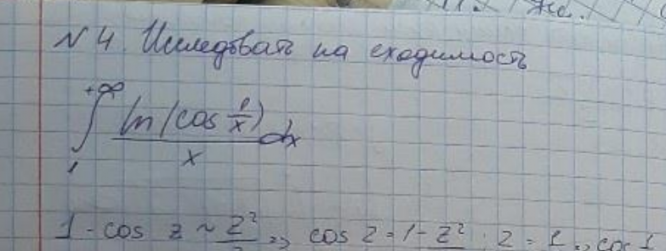 N4. Исследовать на сходимость
∫₁^{+∞} ln(cos 1/x)/x dx
1 - cos z ~ z²/2 => cos z = 1 - z²